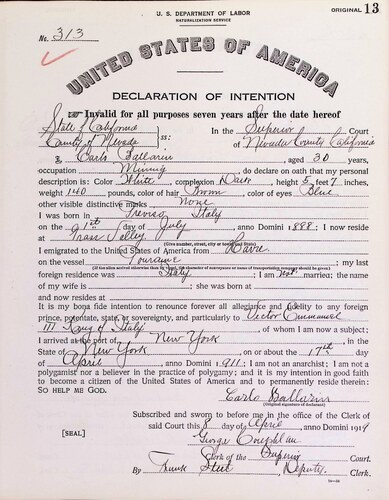 U. S. DEPARTMENT OF LABOR
NATURALIZATION SERVICE
ORIGINAL 13
No. 313
UNITED STATES OF AMERICA
DECLARATION OF INTENTION
Invalid for all purposes seven years after the date hereof
State of California
County of Nevada ss: In the Superior Court
of Nevada County California
I, Carlo Ballarin, aged 30 years,
occupation Mining, do declare on oath that my personal
description is: Color White, complexion Dark, height 5 feet 7 inches,
weight 140 pounds, color of hair Brown, color of eyes Blue
other visible distinctive marks None
I was born in Treviso Italy
on the 21st day of July, anno Domini 1888; I now reside
at Grass Valley
(Give number, street, city or town, and State)
I emigrated to the United States of America from Havre
on the vessel Touraine; my last
(If the alien arrived otherwise than by vessel, the character of conveyance or name of transportation company should be given)
foreign residence was Italy; I am not married; the name
of my wife is; she was born at
and now resides at
It is my bona fide intention to renounce forever all allegiance and fidelity to any foreign
prince, potentate, state or sovereignty, and particularly to Victor Emmanuel
III King of Italy, of whom I am now a subject;
I arrived at the port of New York, in the
State of New York, on or about the 17th day
of April, anno Domini 1911; I am not an anarchist; I am not a
polygamist nor a believer in the practice of polygamy; and it is my intention in good faith
to become a citizen of the United States of America and to permanently reside therein:
SO HELP ME GOD.
Carlo Ballarin
(Original signature of declarant)
Subscribed and sworn to before me in the office of the Clerk of
[SEAL] said Court this 8 day of April, anno Domini 1919
George Coughlan
Clerk of the Superior Court.
By Steel, Deputy Clerk.